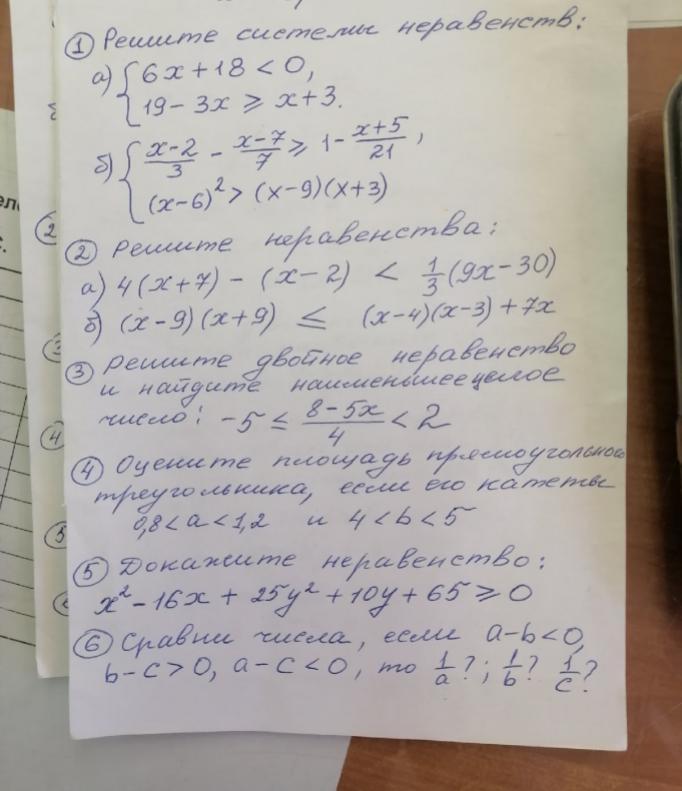 ① Решите системы неравенств:
а) { 6x + 18 < 0,
19 - 3x ⩾ x + 3.
б) { (x-2)/3 - (x-7)/7 ⩾ 1 - (x+5)/21,
(x-6)² > (x-9)(x+3)
② Решите неравенства:
а) 4(x+7) - (x-2) < 1/3 (9x-30)
б) (x-9)(x+9) ≤ (x-4)(x-3)+7x
③ Решите двойное неравенство
и найдите наименьшее целое
число: -5 ≤ (8-5x)/4 < 2
④ Оцените площадь прямоугольного
треугольника, если его катеты
0,8 < a < 1,2 и 4 < b < 5
⑤ Докажите неравенство:
x² - 16x + 25y² + 10y + 65 ⩾ 0
⑥ Сравни числа, если a-b<0,
b-c>0, a-c<0, то 1/a?; 1/b? 1/c?
2
3
4
5